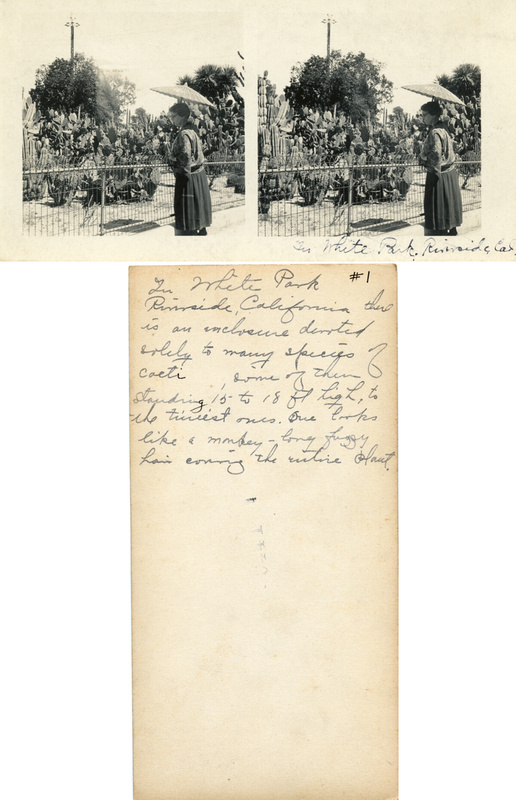 In White Park, Riverside, Cal,
#1
In White Park
Riverside, California there
is an inclosure devoted
solely to many species of
cacti, some of them
standing 15 to 18 ft high, to
the tiniest ones. One looks
like a monkey - long fuzzy
hair covering the entire plant.